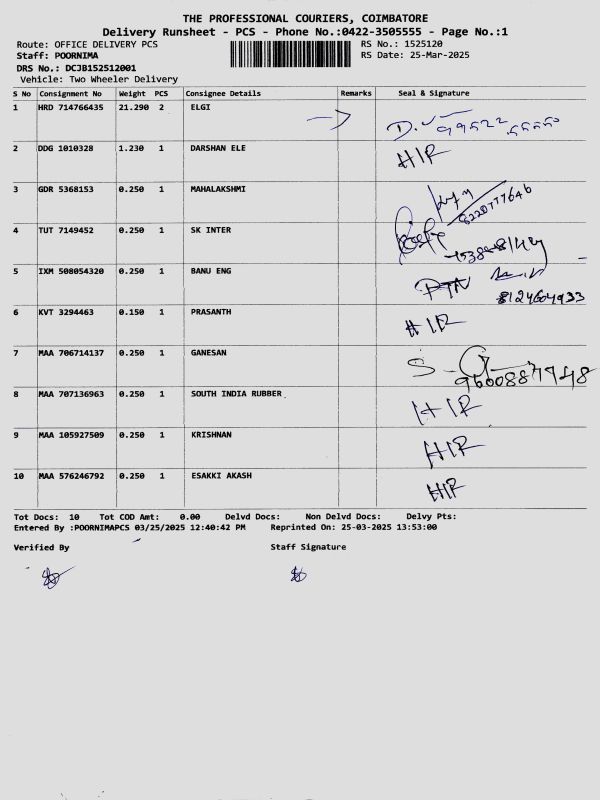 THE PROFESSIONAL COURIERS, COIMBATORE
Delivery Runsheet - PCS - Phone No.:0422-3505555 - Page No.:1
Route: OFFICE DELIVERY PCS RS No.: 1525120
Staff: POORNIMA RS Date: 25-Mar-2025
DRS No.: DCJB152512001
Vehicle: Two Wheeler Delivery
S No Consignment No Weight PCS Consignee Details Remarks Seal & Signature
1 HRD 714766435 21.290 2 ELGI
2 DDG 1010328 1.230 1 DARSHAN ELE HIR
3 GDR 5368153 0.250 1 MAHALAKSHMI 8220777646
4 TUT 7149452 0.250 1 SK INTER
5 IXM 508054320 0.250 1 BANU ENG 8124604933
6 KVT 3294463 0.150 1 PRASANTH HIR
7 MAA 706714137 0.250 1 GANESAN 9600887748
8 MAA 707136963 0.250 1 SOUTH INDIA RUBBER HIR
9 MAA 105927509 0.250 1 KRISHNAN HIR
10 MAA 576246792 0.250 1 ESAKKI AKASH HIR
Tot Docs: 10 Tot COD Amt: 0.00 Delvd Docs: Non Delvd Docs: Delvy Pts:
Entered By :POORNIMAPCS 03/25/2025 12:40:42 PM Reprinted On: 25-03-2025 13:53:00
Verified By Staff Signature